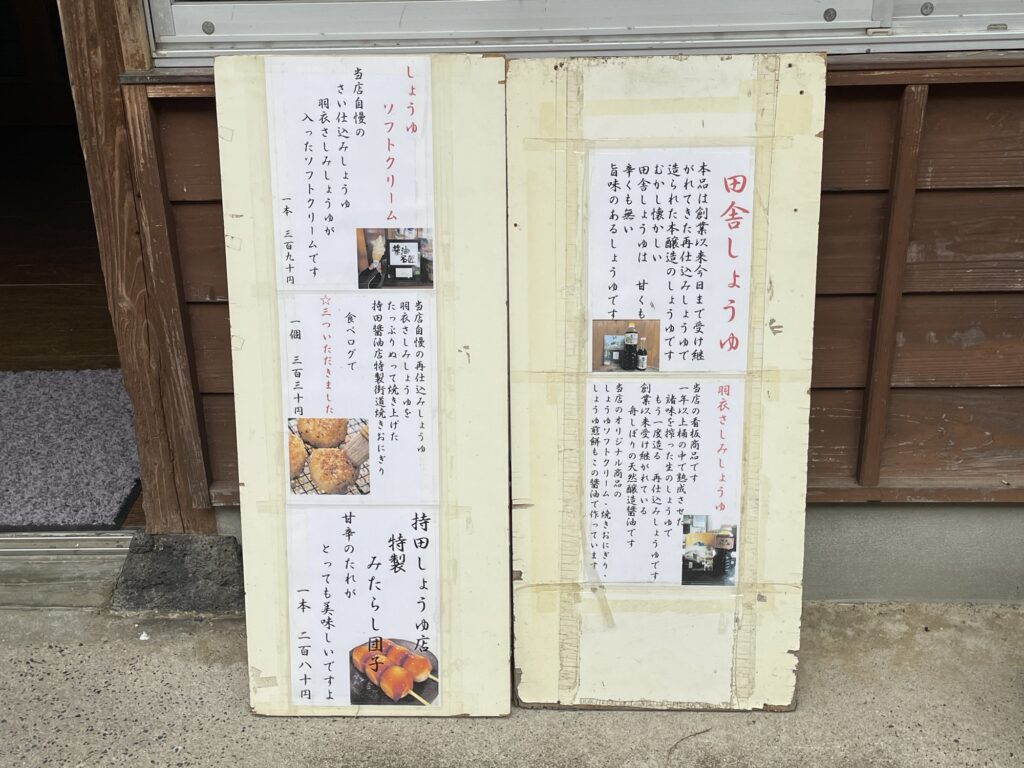 しょうゆ
ソフトクリーム
当店自慢の
さい仕込みしょうゆ
羽衣さしみしょうゆが
入ったソフトクリームです
一本 三百九十円
当店自慢の再仕込みしょうゆ
羽衣さしみしょうゆを
たっぷりぬって焼き上げた
持田醬油店特製街道焼きおにぎり
食べログで
☆三ついただきました
一個 三百三十円
持田しょうゆ店
特製
みたらし団子
甘辛のたれが
とっても美味しいですよ
一本 二百八十円
田舎しょうゆ
本品は創業以来今日まで受け継
がれてきた再仕込みしょうゆで
造られた本醸造のしょうゆです
むかし懐かしい
田舎しょうゆは 甘くも
辛くも無い
旨味のあるしょうゆです
羽衣さしみしょうゆ
当店の看板商品です
一年以上桶の中で熟成させた
諸味を搾った生のしょうゆで
もう一度造る 再仕込みしょうゆです
創業以来受け継がれている
舟しぼりの天然醸造醬油です
当店のオリジナル商品の
しょうゆソフトクリーム・焼きおにぎり・
しょうゆ煎餅もこの醬油で作っています